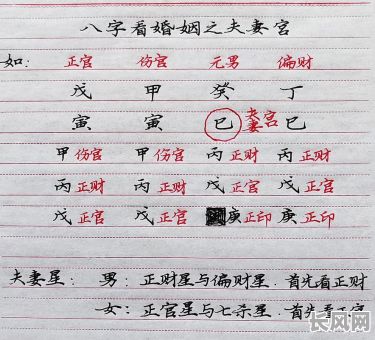 八字看婚姻之夫妻宫
如: 正官 伤官 元男 偏财
戊 甲 癸 丁
寅 寅 巳 夫妻宫 巳
甲伤官 甲伤官 丙正财 丙正财
丙正财 丙正财 戊正官 戊正官
戊正官 戊正官 庚正印 庚正印
夫妻星: 男: 正财星与偏财星. 首先看正财
女: 正官星与七杀星. 首先看正官
长风网